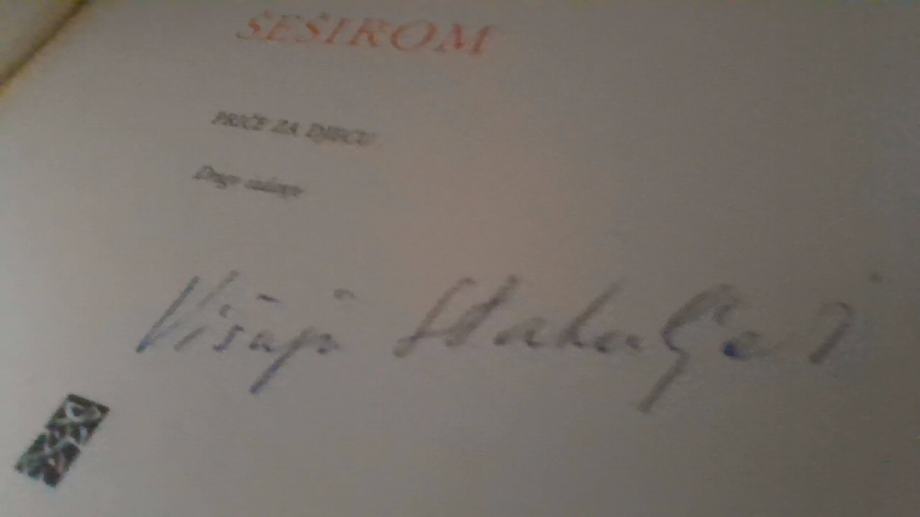 ŠEŠIROM
PRIČE ZA DJECU
Drugo izdanje
Višnji Stahuljak